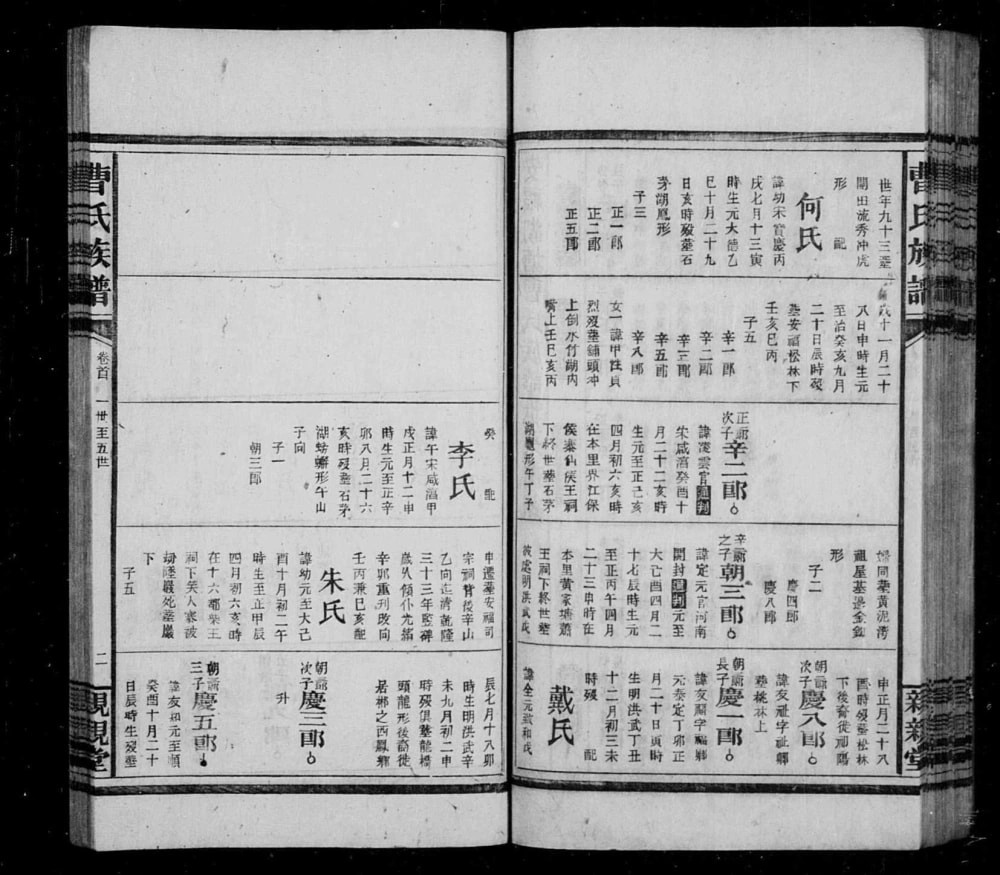 曹氏族譜
世年九十三塟
開田流秀冲虎
形　配
何氏
諱幼宋寳慶丙
戌七月十三寅
時生元大德乙
巳十月二十九
日亥時歿塟石
茅湖鳳形
子三
正一郎
正二郎
正五郎
戌十一月二十
八日申時生元
至治癸亥九月
二十日辰時歿
塟安福松林下
壬亥巳丙
子五
辛一郎
辛二郎
辛三郎
辛五郎
辛八郎
女一諱甲性貞
烈歿塟鋪頭冲
上倒水竹湖内
嘴上壬巳亥丙
正二郎次子
辛二郎
諱淩雲官通判
宋咸淳癸酉十
月二十二亥時
生元至正己亥
四月初六亥時
在本里界江保
侯泰仙侯王祠
下終世塟石茅
湖鳳形午丁子
癸　配
李氏
諱午宋咸淳甲
戌正月十二申
時生元至正辛
卯八月二十六
亥時歿塟石茅
湖螃蠏形午山
子向
子一
朝三郎
婦同塟黄泥灣
祖屋基邊金釵
形
子二
慶四郎
慶八郎
辛二郎之子
朝三郎
諱定元官河南
開封通判元至
大己酉四月二
十七辰時生元
至正丙午四月
二十三申時在
本里黄家塘蕭
王祠下終世塟
彼處明洪武戊
申遷塟安福司
宗祠背後辛山
乙向迄清乾隆
三十三年監碑
歲久傾仆光緒
辛卯重刋改向
壬丙兼巳亥配
朱氏
諱幼元至大己
酉十月初二午
時生至正甲辰
四月初六亥時
在十六都柴王
祠下吳人寨被
刼墜嚴死塟巖
下
子五
申正月二十八
酉時歿塟松林
下後裔徙邵陽
朝三郎次子
慶八郎
諱友祉字祉卿
塟桃林上
朝三郎長子
慶一郎
諱友關字福卿
元泰定丁卯正
月二十日寅時
生明洪武丁丑
十二月初三未
時歿　配
戴氏
諱全元致和戊
辰七月十八卯
時生明洪武辛
未九月初二申
時歿俱塟龍橋
頭龍形後裔徙
居郴之西鳳鄉
朝三郎次子
慶三郎
升
朝三郎三子
慶五郎
諱友和元至順
癸酉十月二十
日辰時生歿塟
曹氏族譜
卷首
一世至五世
二
親親堂